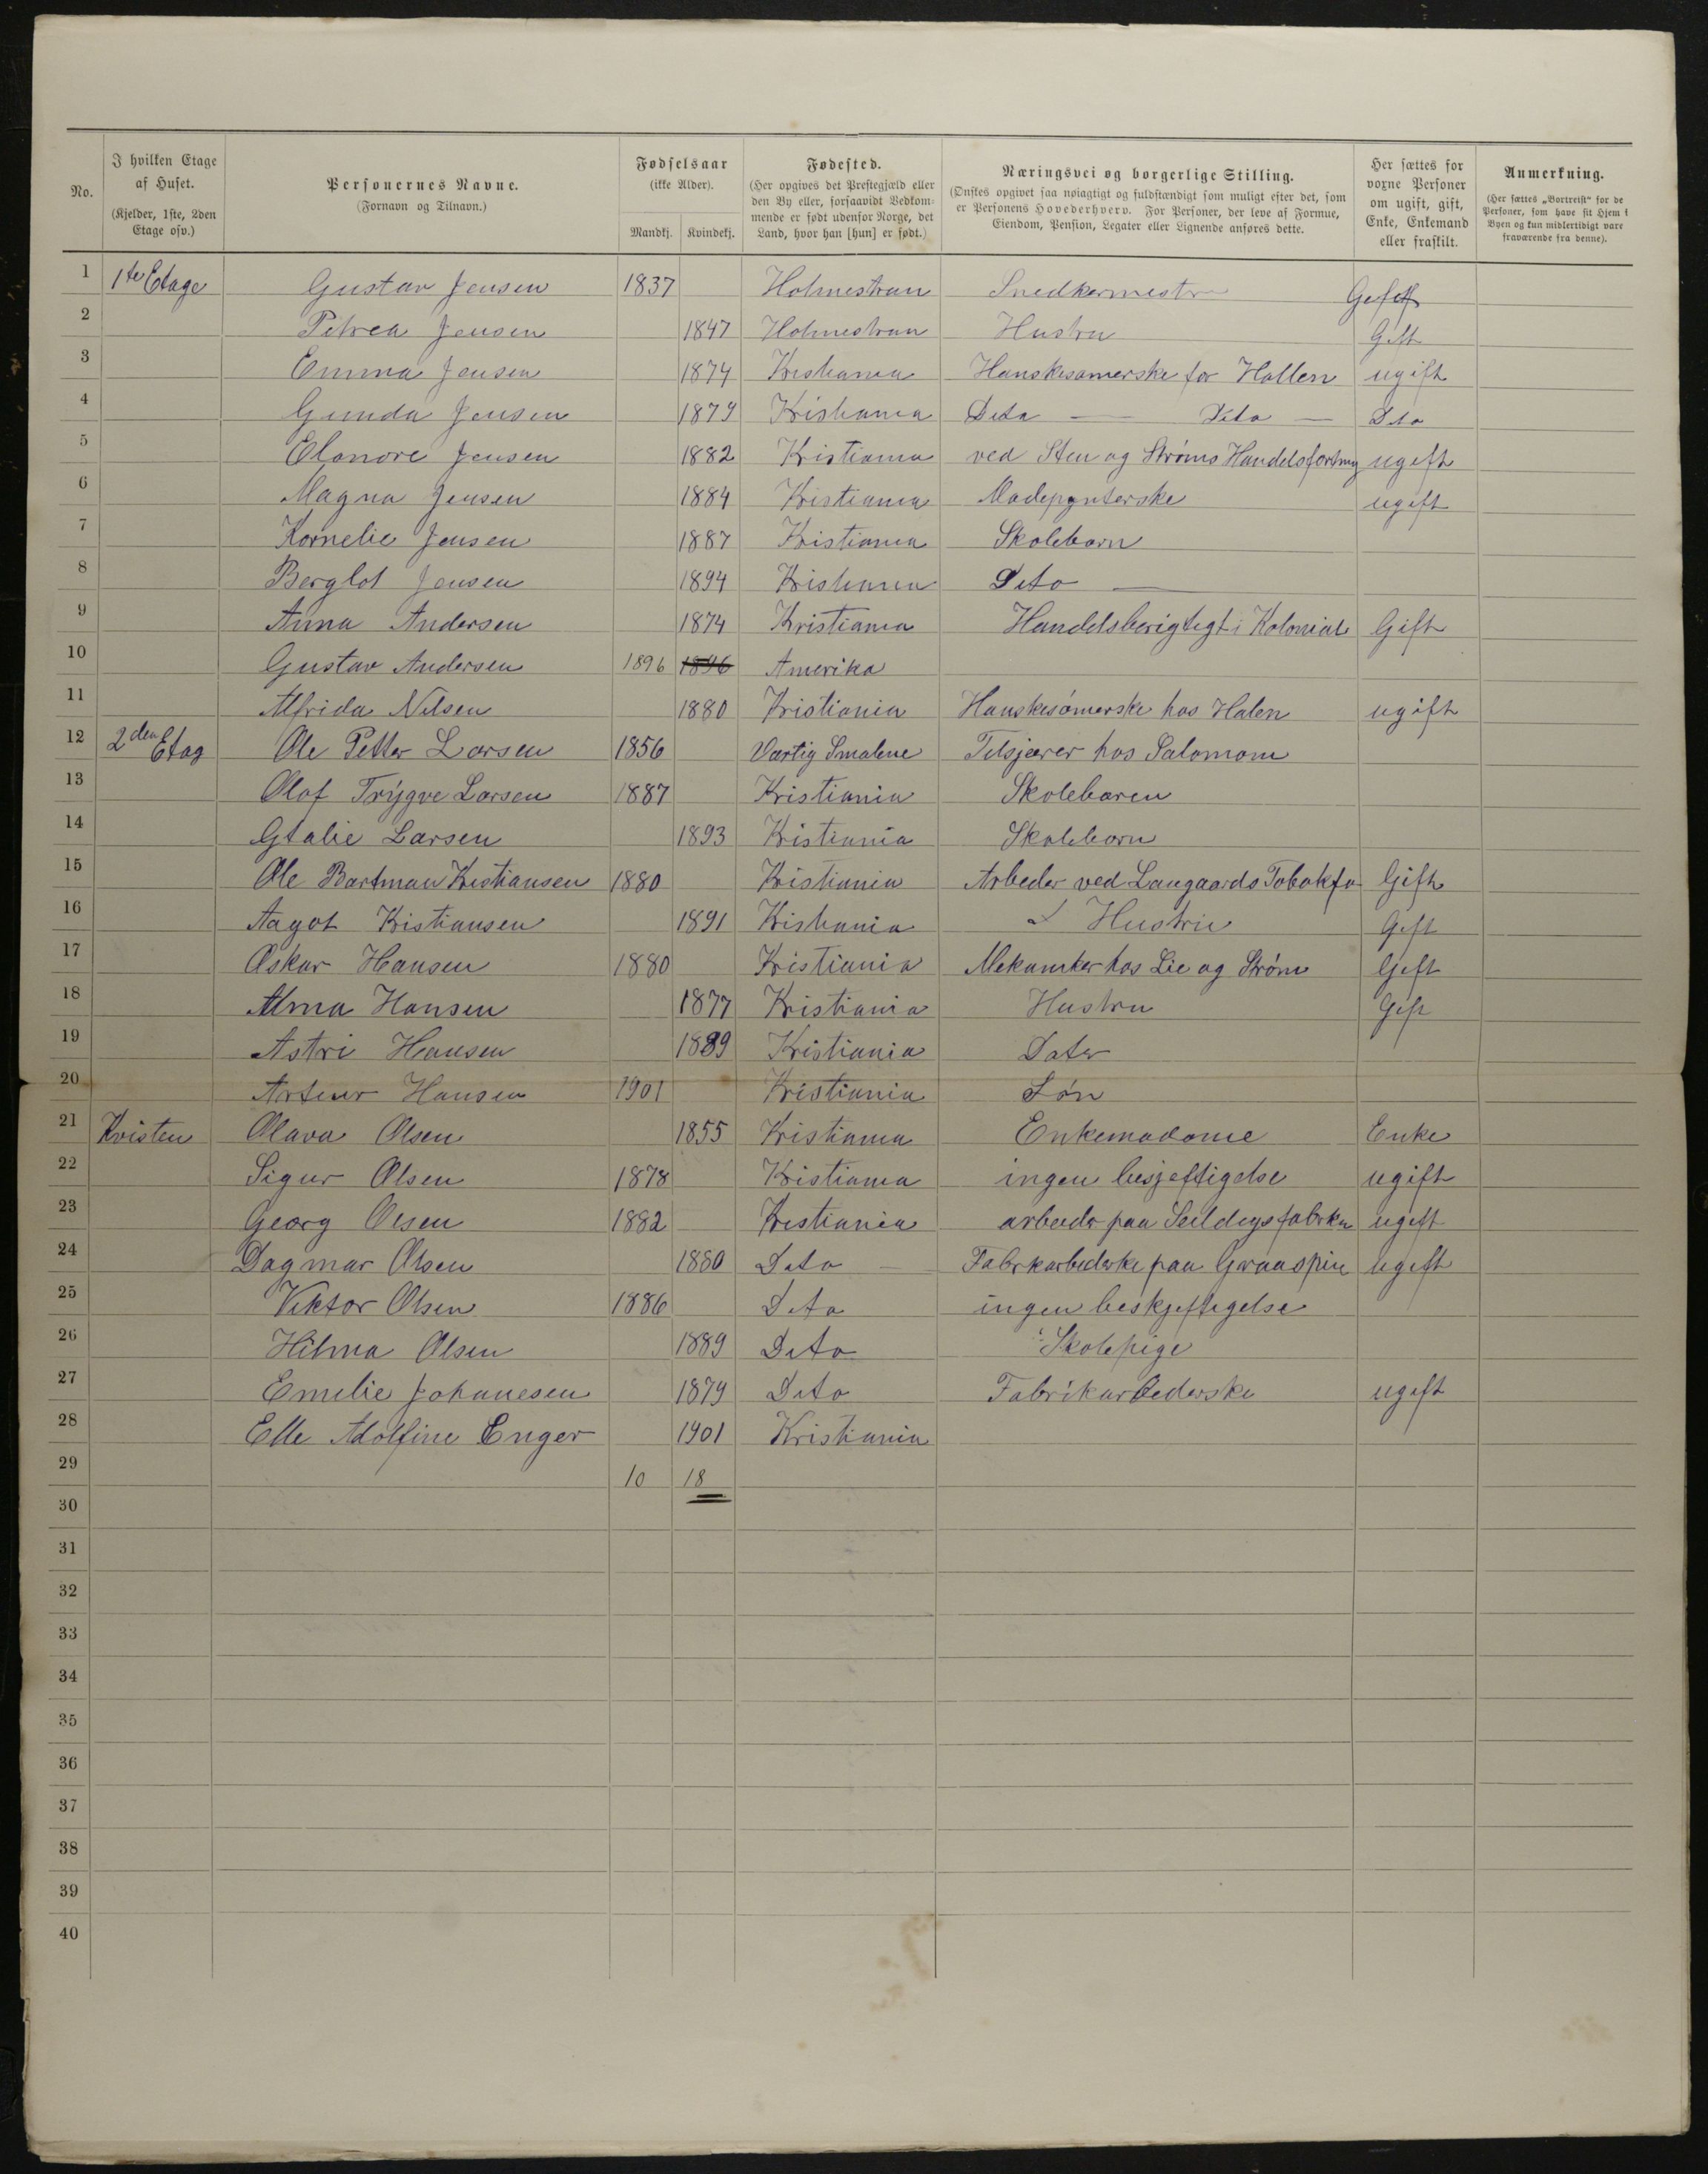 No.
I hvilken Etage af Huset. (Kjelder, 1ste, 2den Etage osv.)
Personernes Navne. (Fornavn og Tilnavn.)
Fødselsaar (ikke Alder). Mandkj. Kvindekj.
Fødested. (Her opgives det Prestegjæld eller den By eller, forsaavidt Vedkommende er født udenfor Norge, det Land, hvor han [hun] er født.)
Næringsvei og borgerlige Stilling. (Ønskes opgivet saa nøiagtigt og fuldstændigt som muligt efter det, som er Personens Hovederhverv. For Personer, der leve af Formue, Eiendom, Pension, Legater eller Lignende anføres dette.
Her sættes for voxne Personer om ugift, gift, Enke, Enkemand eller fraskilt.
Anmerkning. (Her sættes „Bortreist“ for de Personer, som have sit Hjem i Byen og kun midlertidigt vare fraværende fra denne).
1 1ste Etage Gustav Jensen 1837 Holmestran Snedkermestr
2 Petrea Jensen 1847 Holmestran Hustru Gift
3 Emma Jensen 1874 Kristiania Hanskesømerske for Hallen ugift
4 Gunda Jensen 1879 Kristiania Dito — Dito — Dito
5 Elonore Jensen 1882 Kristiania ved Sten og Strøms Handelsforttng ugift
6 Magna Jensen 1884 Kristiania Modepynterske ugift
7 Kornelie Jensen 1887 Kristiania Skolebarn
8 Berglot Jensen 1894 Kristiania Dito —
9 Anna Andersen 1874 Kristiania Handelsberigtegt i Kolonial Gift
10 Gustav Andersen 1896 1896 Amerika
11 Alfrida Nilsen 1880 Kristiania Hanskesømerske hos Halen ugift
12 2den Etag Ole Petter Larsen 1856 Vartig Smalene Tilsjærer hos Salomom
13 Olaf Trygve Larsen 1887 Kristiania Skolebaren
14 Gtalie Larsen 1893 Kristiania Skolebarn
15 Ole Bartman Kristiansen 1880 Kristiania Arbeder ved Langaards Tobakfa Gift
16 Aagot Kristiansen 1891 Kristiania Hustru Gift
17 Oskar Hansen 1880 Kristiania Mekaniker hos Lie og Strøm Gift
18 Alma Hansen 1877 Kristiania Hustru Gift
19 Astri Hansen 1889 Kristiania Dater
20 Arteur Hansen 1901 Kristiania Søn
21 Kvisten Olava Olsen 1855 Kristiania Enkemadame Enke
22 Sigur Olsen 1878 Kristiania ingen besjeftigelse ugift
23 Georg Olsen 1882 Kristiania arbeder paa Seildugsfabrken ugift
24 Dagmar Olsen 1880 Dito — Fabrkarbederke paa Graaspin ugift
25 Viktor Olsen 1886 Dito ingen beskjeftigelse
26 Hilma Olsen 1889 Dito Skolepige
27 Emilie Johanesen 1879 Dito Fabrikarbederske ugift
28 Elle Adolfine Enger 1901 Kristiania
29 10 18
30
31
32
33
34
35
36
37
38
39
40